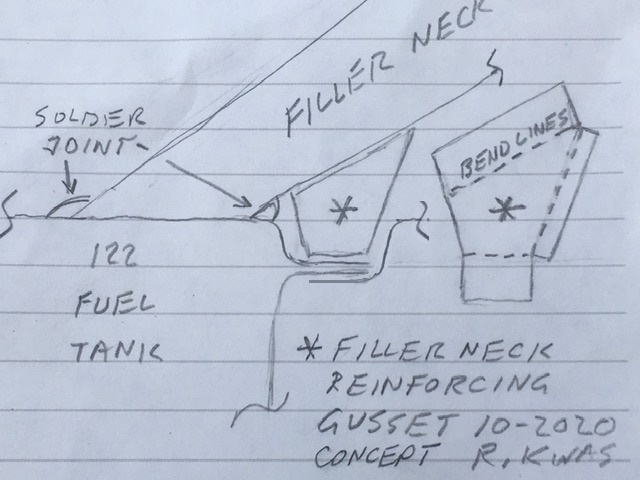 FILLER NECK
SOLDER
JOINT-
BEND LINES
*
*
122
FUEL
TANK
* FILLER NECK
REINFORCING
GUSSET 10-2020
CONCEPT R. KWAS